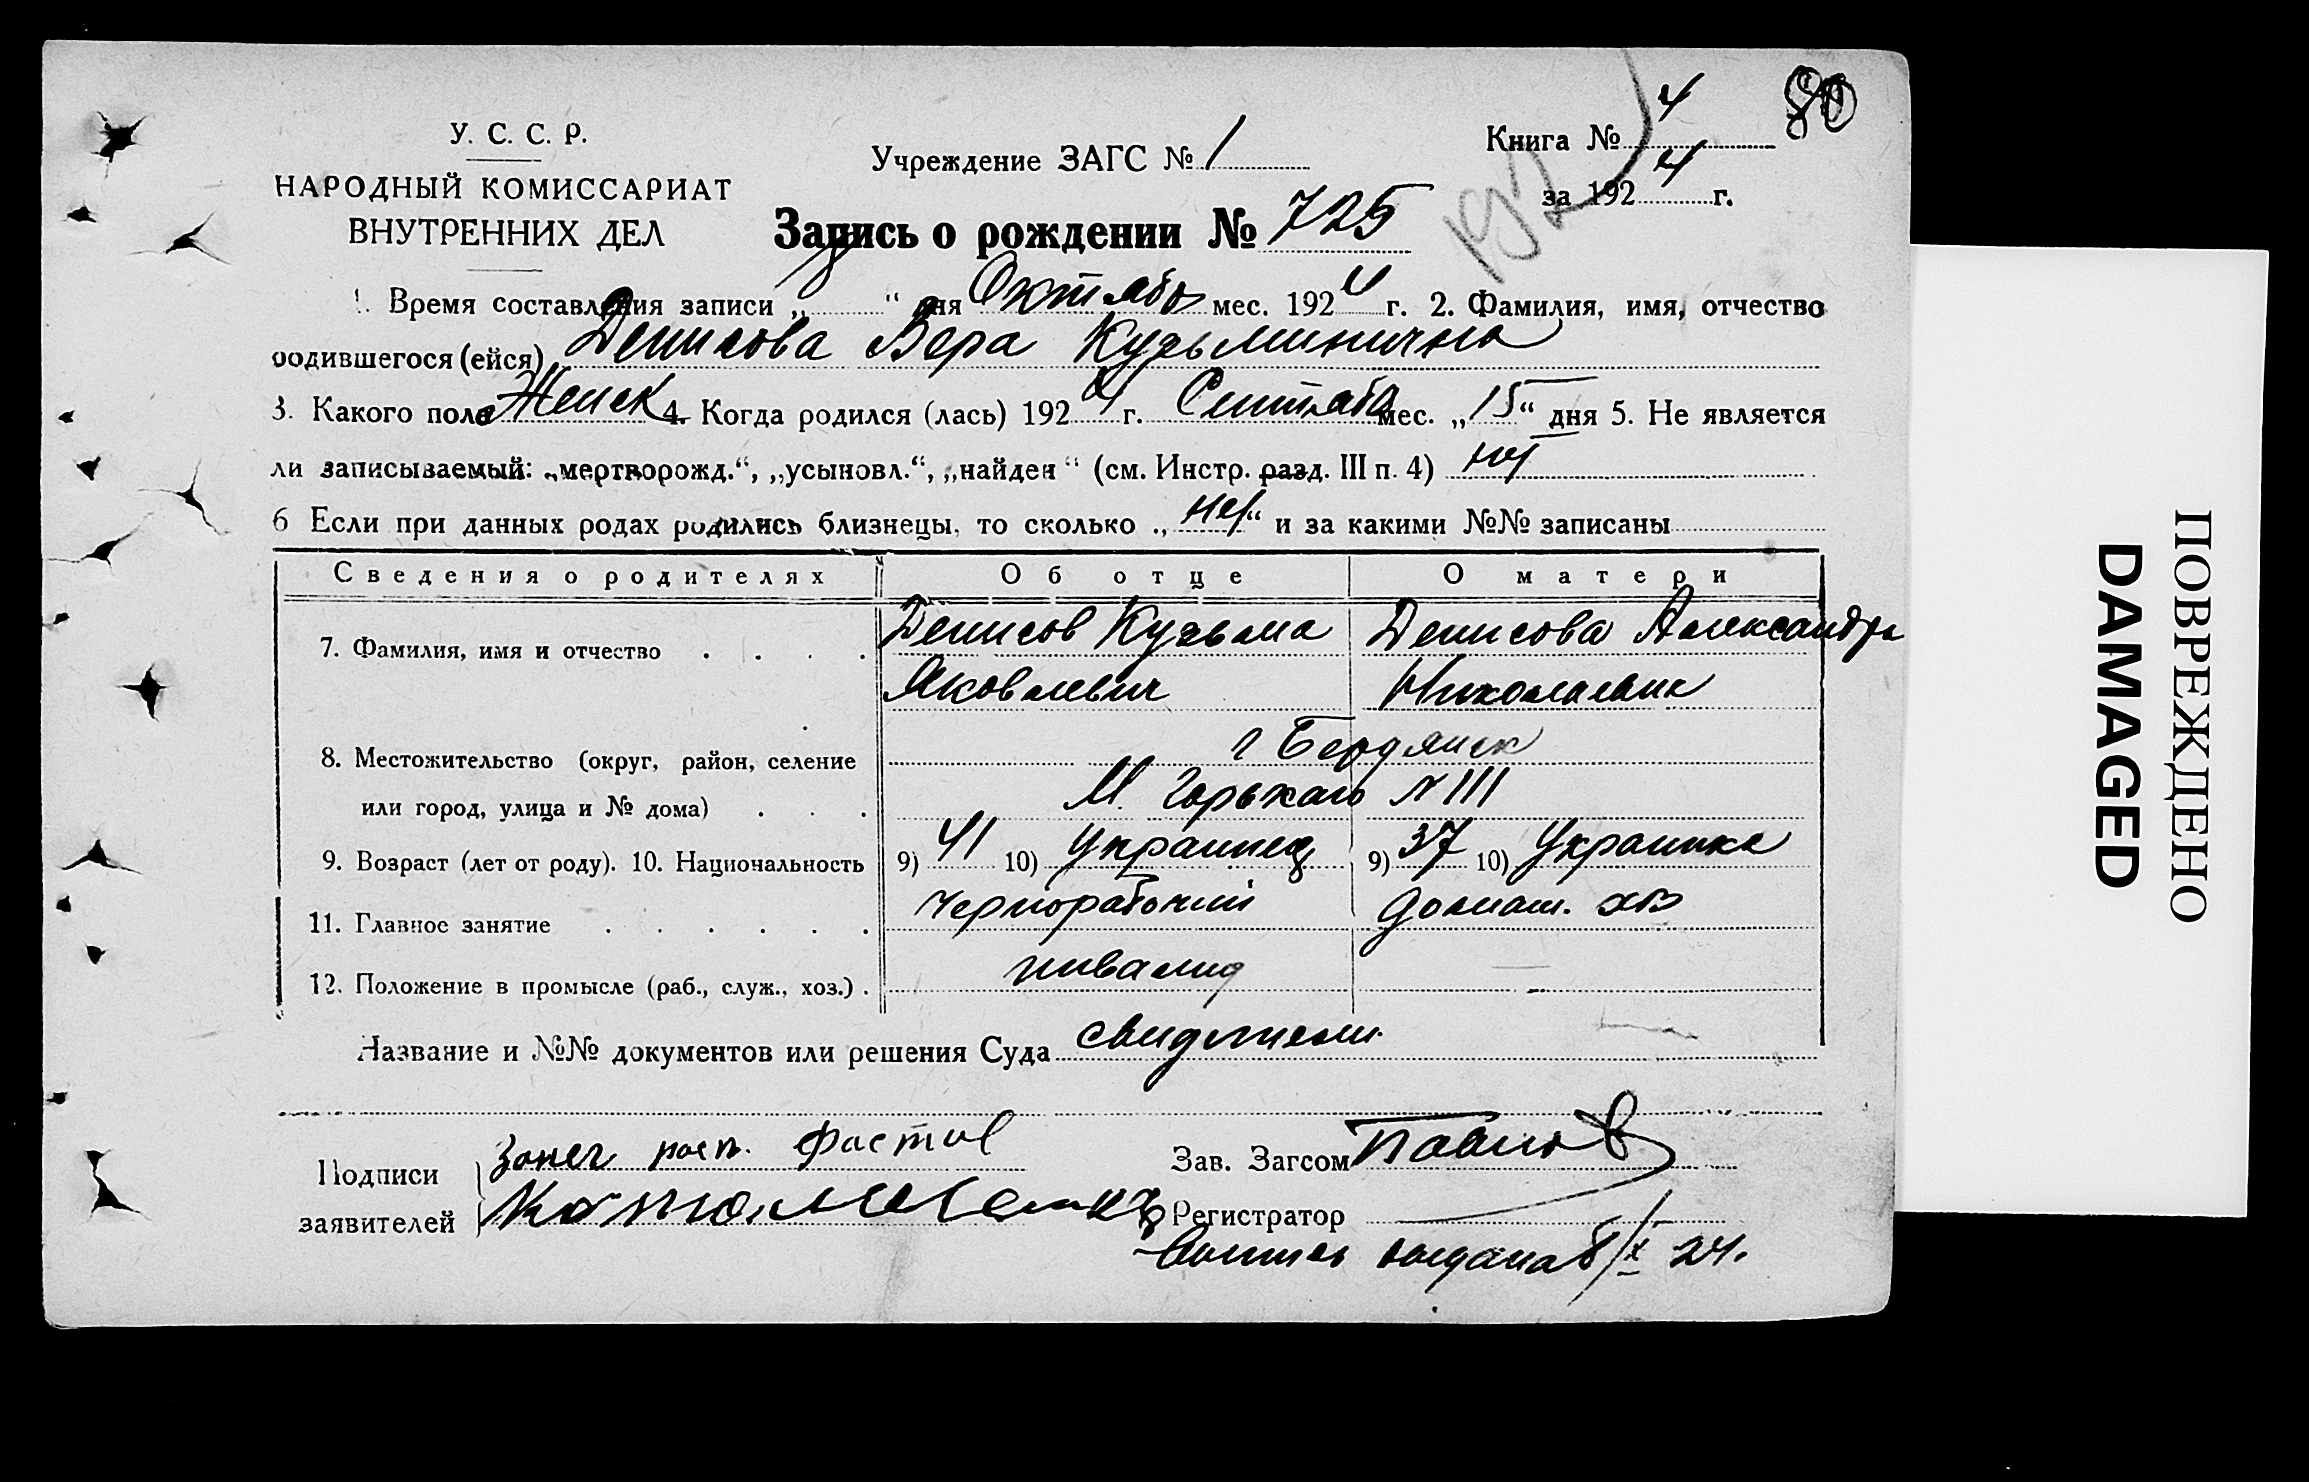 У. С. С. Р.
НАРОДНЫЙ КОМИССАРИАТ
ВНУТРЕННИХ ДЕЛ
Учреждение ЗАГС № 1
Книга № 4
80
за 1924 г.
Запись о рождении № 725
1. Время составления записи „8“ дня Октябр мес. 1924 г. 2. Фамилия, имя, отчество
родившегося (ейся) Денисова Вера Кузьминична
3. Какого пола Женск 4. Когда родился (лась) 1924 г. Сентябр мес. „15“ дня 5. Не является
ли записываемый: „мертворожд.“, „усыновл.“, „найден“ (см. Инстр. разд. III п. 4) нет
6 Если при данных родах родились близнецы, то сколько „нет“ и за какими №№ записаны
Сведения о родителях Об отце О матери
7. Фамилия, имя и отчество Денисов Кузьма Денисова Александра
Яковлевич Николаевна
8. Местожительство (округ, район, селение г Бердянск
или город, улица и № дома) М. Горькаго № 111
9. Возраст (лет от роду). 10. Национальность 9) 41 10) Украинец 9) 37 10) Украинка
11. Главное занятие Чернорабочий домаш. хоз
12. Положение в промысле (раб., служ., хоз.) инвалид
Название и №№ документов или решения Суда
Подписи
заявителей
Зав. Загсом Павлов
Регистратор
выдана 8/X 24.
ПОВРЕЖДЕНО
DAMAGED